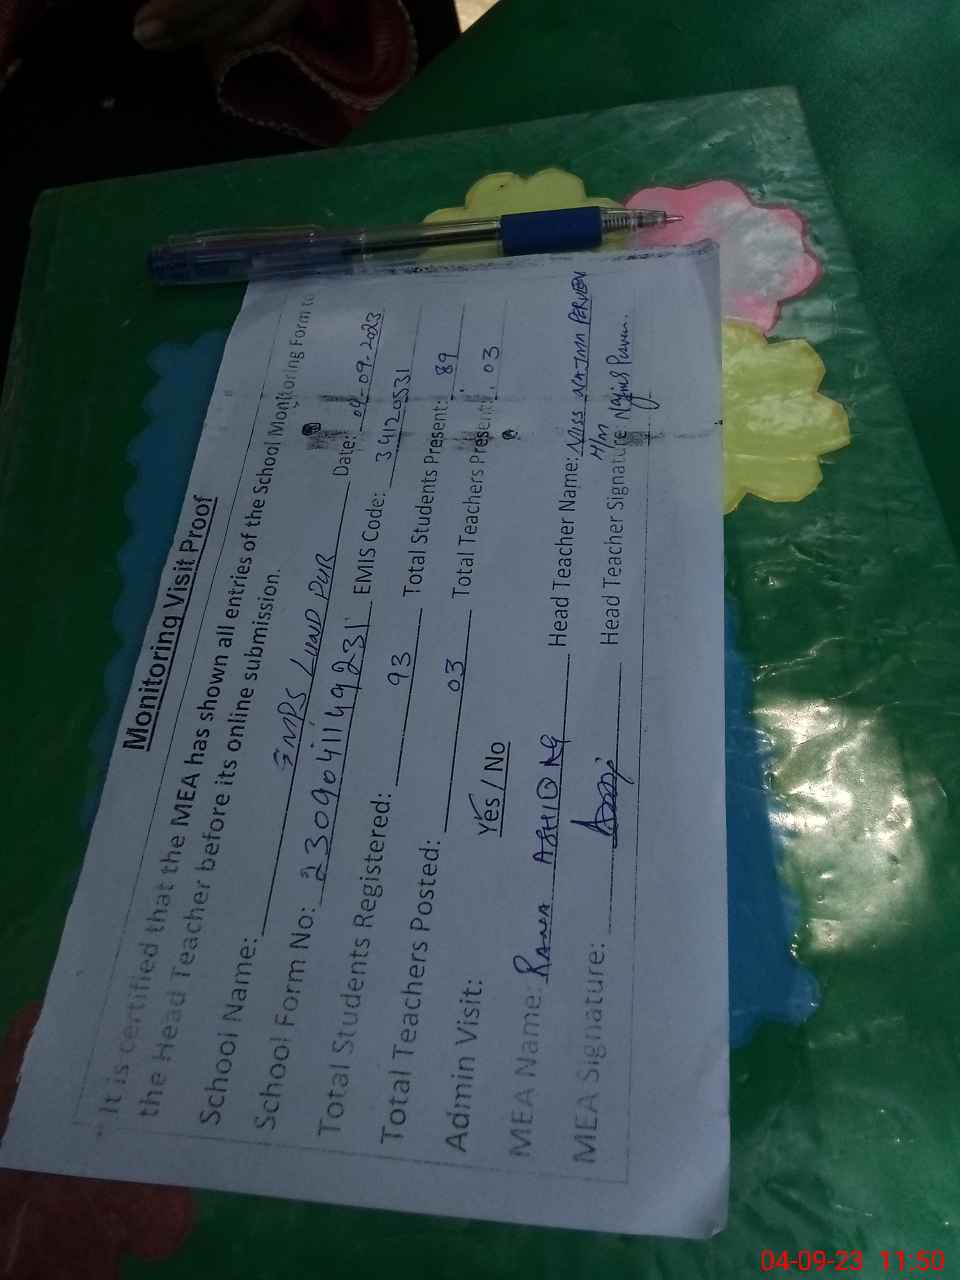 Monitoring Visit Proof
It is certified that the MEA has shown all entries of the School Monitoring Form to
the Head Teacher before its online submission.
School Name: GMPS LUND PUR Date: 04-09-2023
School Form No: 2309041149231 EMIS Code: 34120531
Total Students Registered: 93 Total Students Present: 89
Total Teachers Posted: 03 Total Teachers Present: 03
Admin Visit: Yes / No
MEA Name: RANA ASHIQ Head Teacher Name: MISS NAJMA PERVEEN
H/M
MEA Signature: Head Teacher Signature:
04-09-23 11:50